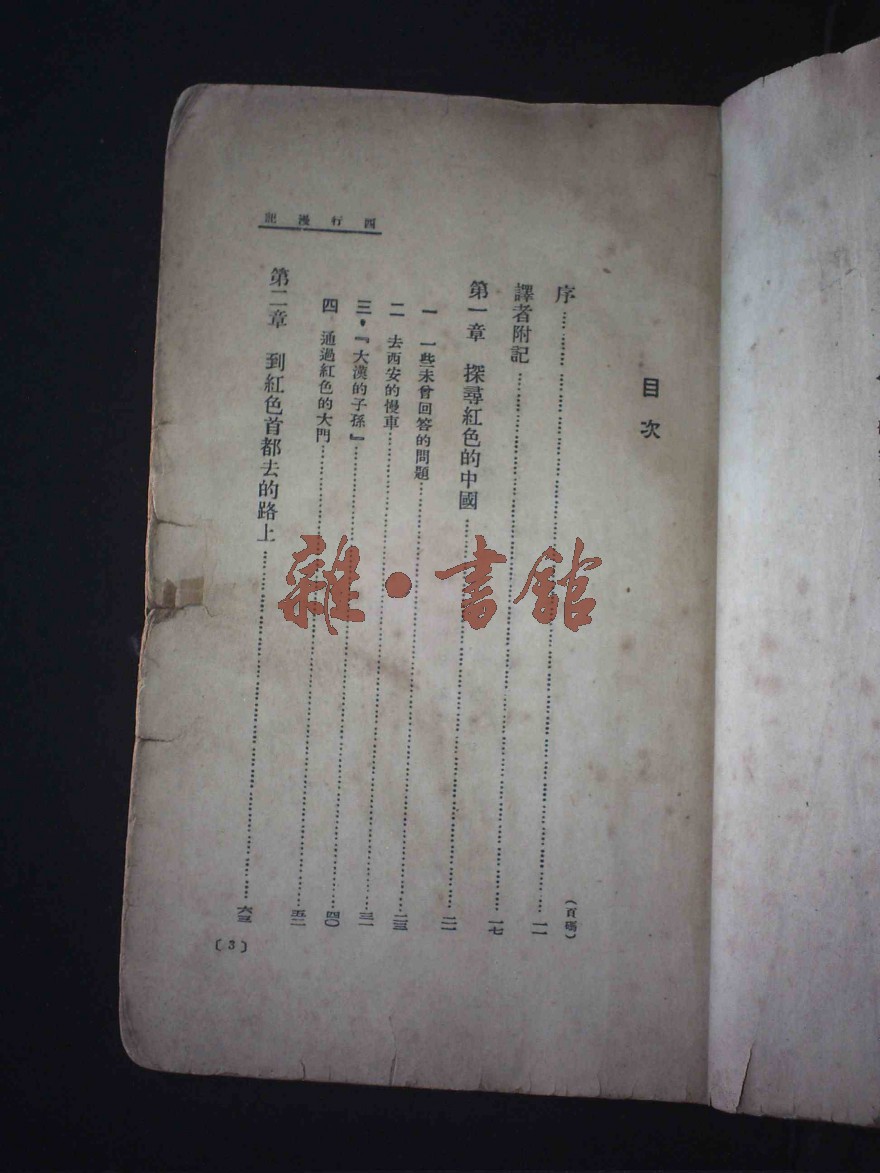 西行漫記
目次
(頁碼)
序……一一
譯者附記……一七
第一章 探尋紅色的中國……二一
一 一些未曾回答的問題……二三
二 去西安的慢車……三一
三・『大漢的子孫』……四〇
四 通過紅色的大門……五二
第二章 到紅色首都去的路上……六三
〔3〕
雜・書館